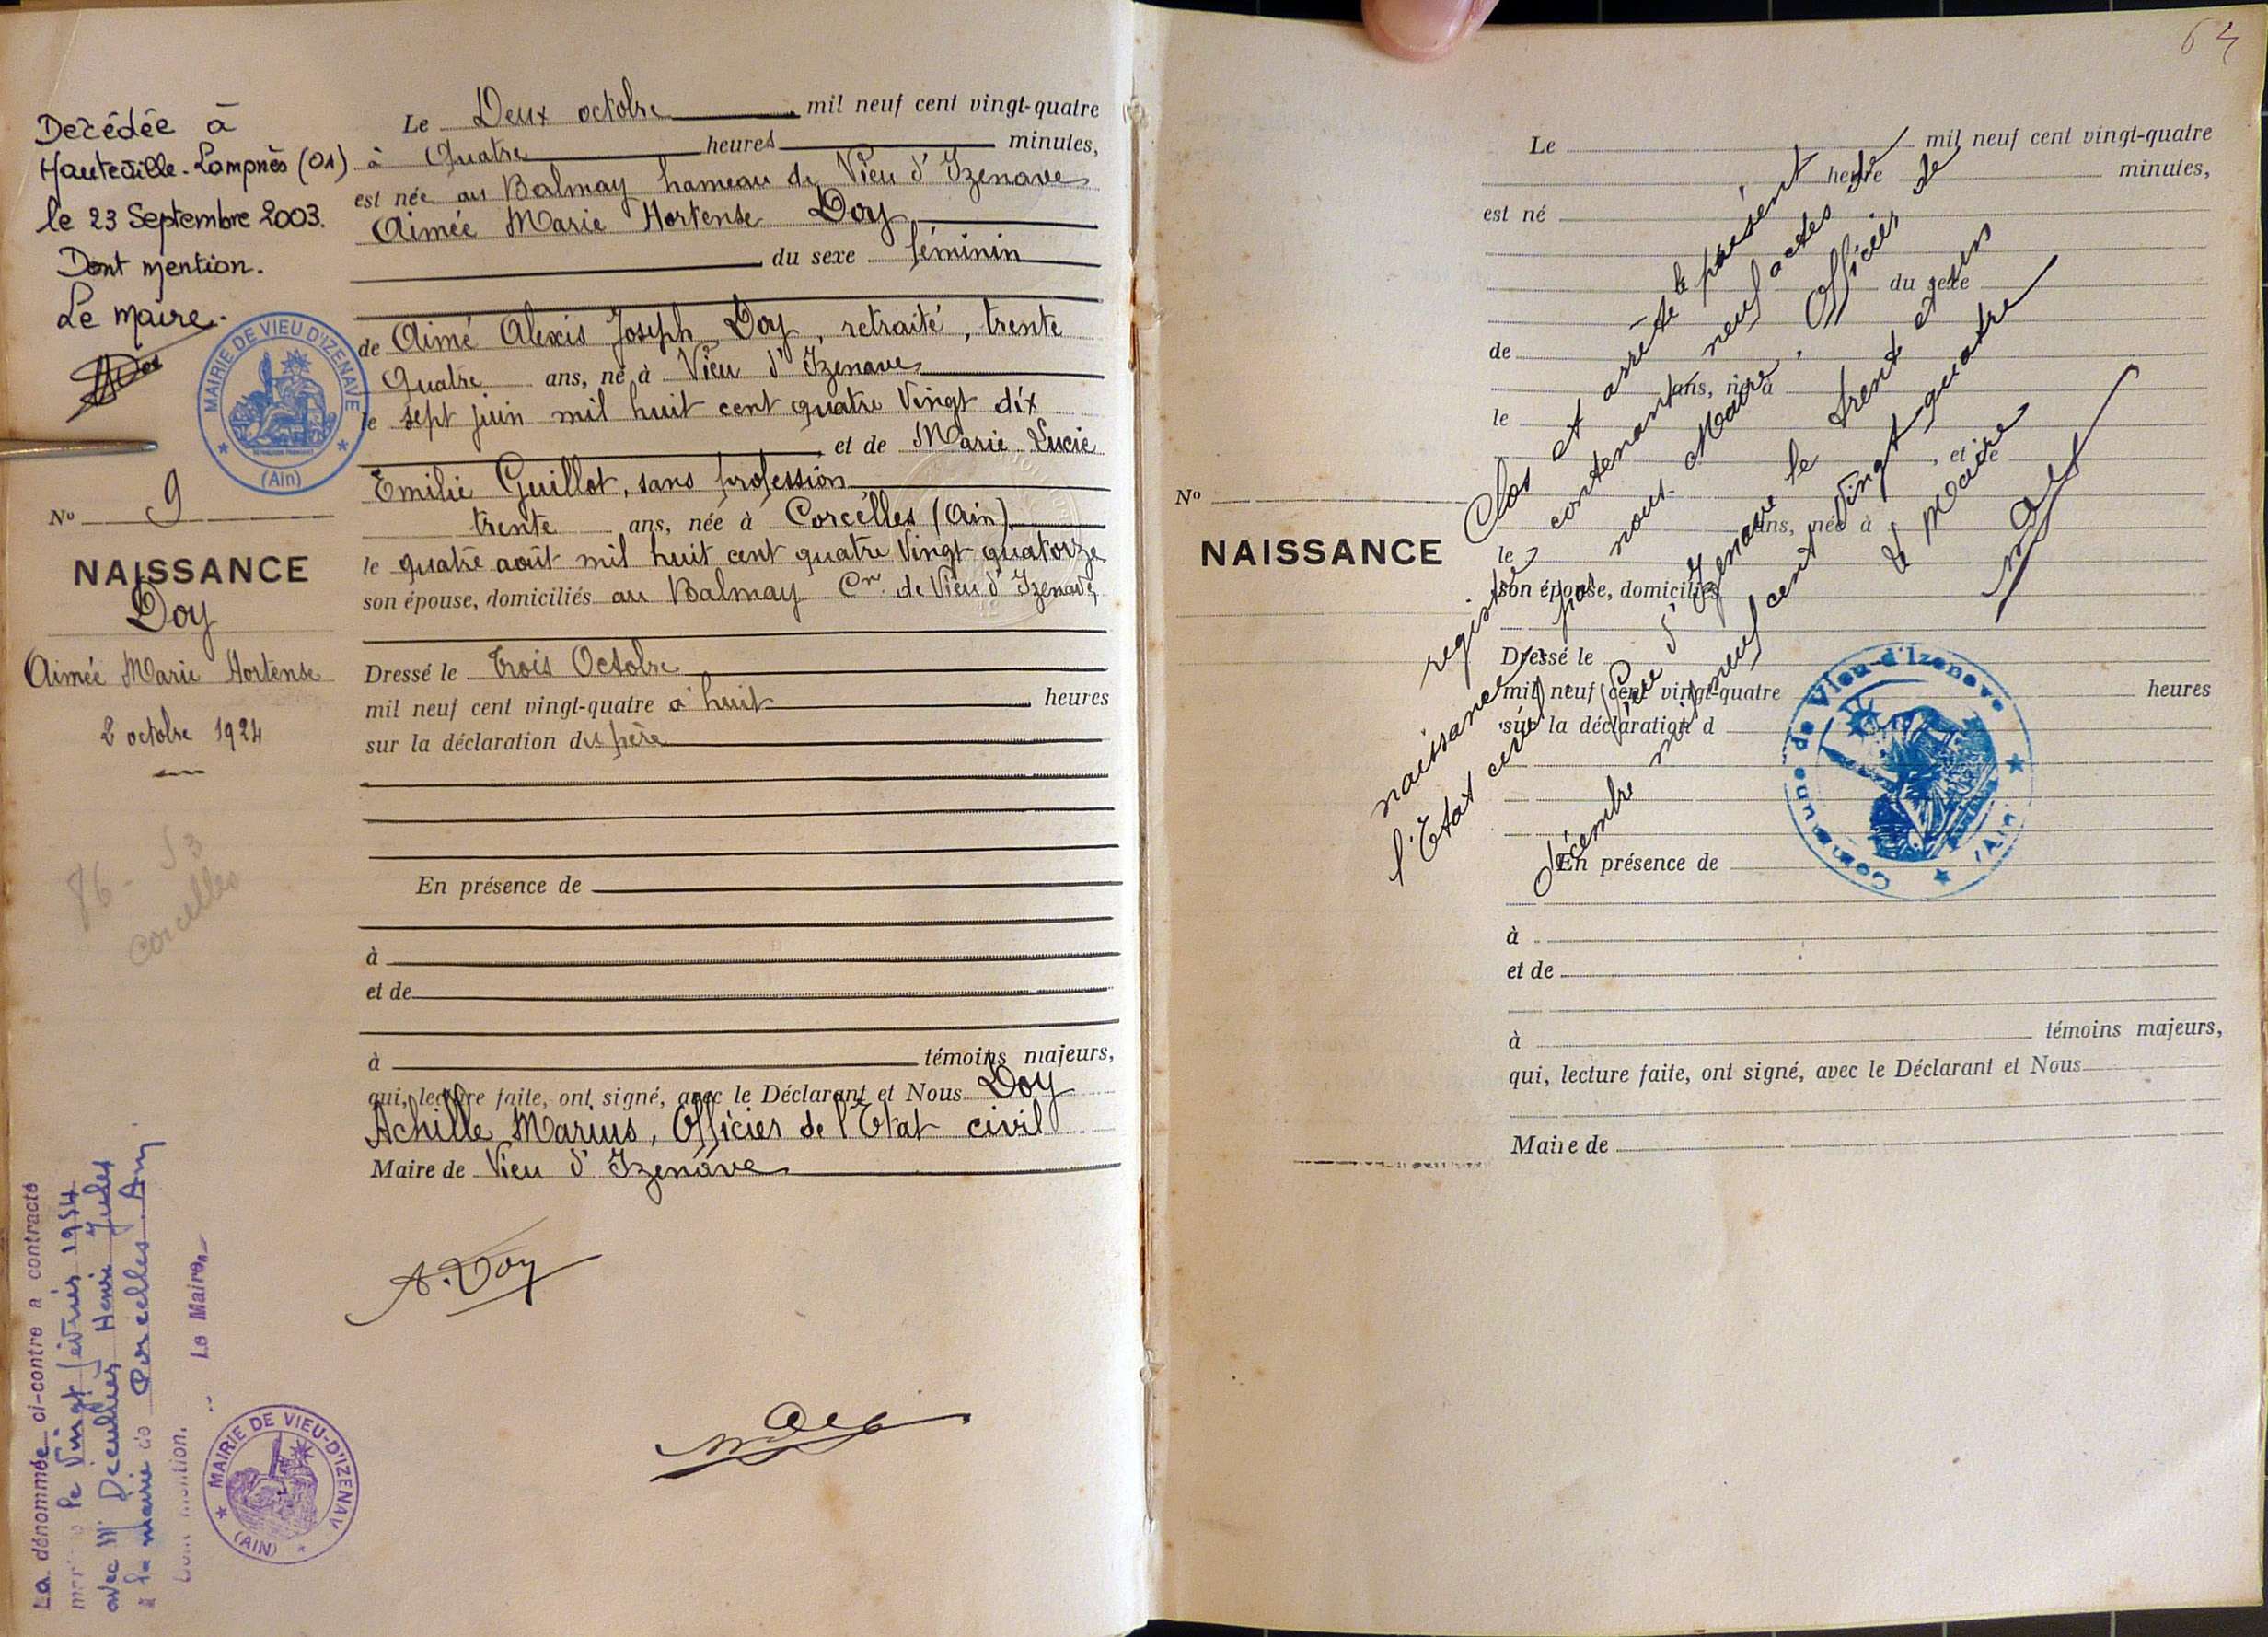 Decédée à
Hauteville-Lompnès (01)
le 23 Septembre 2003.
Dont mention.
Le Maire.
MAIRIE DE VIEU D'IZENAVE
(Ain)
Nº 9
NAISSANCE
Doy
Aimée Marie Hortense
2 octobre 1924
Corcelles
La dénommée ci-contre a contracté
le vingt février 1954
avec M. Henri Jules
à la mairie de Corcelles Ain
Dont mention.
Le Maire,
MAIRIE DE VIEU-D'IZENAV
(AIN)
Le Deux octobre mil neuf cent vingt-quatre
à Quatre heures minutes,
est née au Balmay hameau de Vieu d'Izenave
Aimée Marie Hortense Doy
du sexe féminin
de Aimé Alexis Joseph Doy, retraité, trente
Quatre ans, né à Vieu d'Izenave
le sept juin mil huit cent quatre Vingt dix
et de Marie Lucie
Emilie Guillot, sans profession
trente ans, née à Corcelles (Ain)
le quatre août mil huit cent quatre Vingt quatorze
son épouse, domiciliés au Balmay Cne de Vieu d'Izenave
Dressé le trois Octobre
mil neuf cent vingt-quatre à huit heures
sur la déclaration du père
En présence de
à
et de
à témoins majeurs,
qui, lecture faite, ont signé, avec le Déclarant et Nous Doy
Achille Marius, Officier de l'Etat civil
Maire de Vieu d'Izenave
A. Doy
Le mil neuf cent vingt-quatre
heure minutes,
est né
du sexe
de
ans, né à
le
, et de
Nº
ans, née à
NAISSANCE
le
son épouse, domiciliés
Dressé le
mil neuf cent vingt-quatre heures
sur la déclaration d
En présence de
à
et de
à témoins majeurs,
qui, lecture faite, ont signé, avec le Déclarant et Nous
Maire de
Clos et arrêté le présent
registre contenant neuf actes de
naissance par nous Maire, Officier de
l'Etat civil Vieu d'Izenave le trente et un
décembre mil neuf cent vingt-quatre
Le Maire
Commune de Vieu-d'Izenave
(Ain)